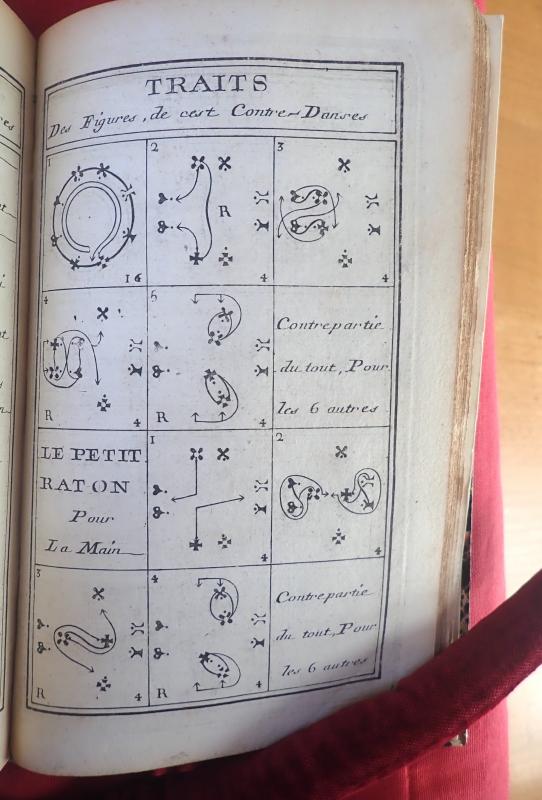 TRAITS
Des Figures, de cest Contre-Danses
1
16
2
R
4
3
4
4
R
4
5
R
4
Contrepartie
du tout, Pour
les 6 autres
LE PETIT
RATON
Pour
La Main
1
4
2
4
3
R
4
4
R
4
Contrepartie
du tout, Pour
les 6 autres